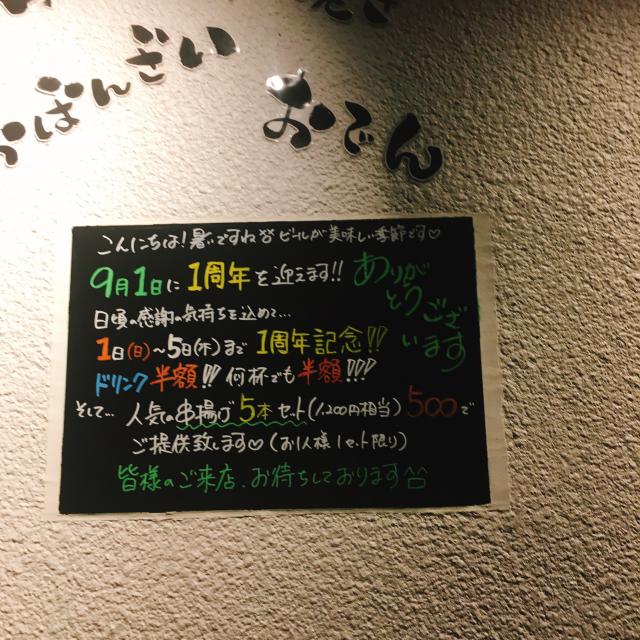 ばんざい
おでん
こんにちは!暑いですね ビールが美味しい季節です♡
9月1日に1周年を迎えます!!
ありがとうございます
日頃の感謝の気持ちを込めて…
1日(日)~5日(木)まで 1周年記念!!
ドリンク半額!! 何杯でも半額!!!
そして… 人気の串揚げ5本セット(1,200円相当)500で
ご提供致します♡(お1人様1セット限り)
皆様のご来店、お待ちしております